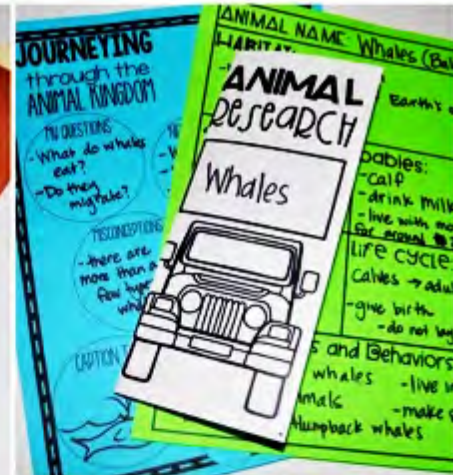 JOURNEYING
through the
ANIMAL KINGDOM
MY QUESTIONS
- What do whales
eat?
- Do they
migrate?
MISCONCEPTIONS
- there are
more than a
few type
CAPTION
ANIMAL
RESEARCH
Whales
ANIMAL NAME: Whales
HABITAT
Earth's
babies:
- calf
- drink milk
- live with
for around
Life Cycle
Calves → adul
- give birth
- do not lay
and Behaviors
whales - live
- make
Humpback whales